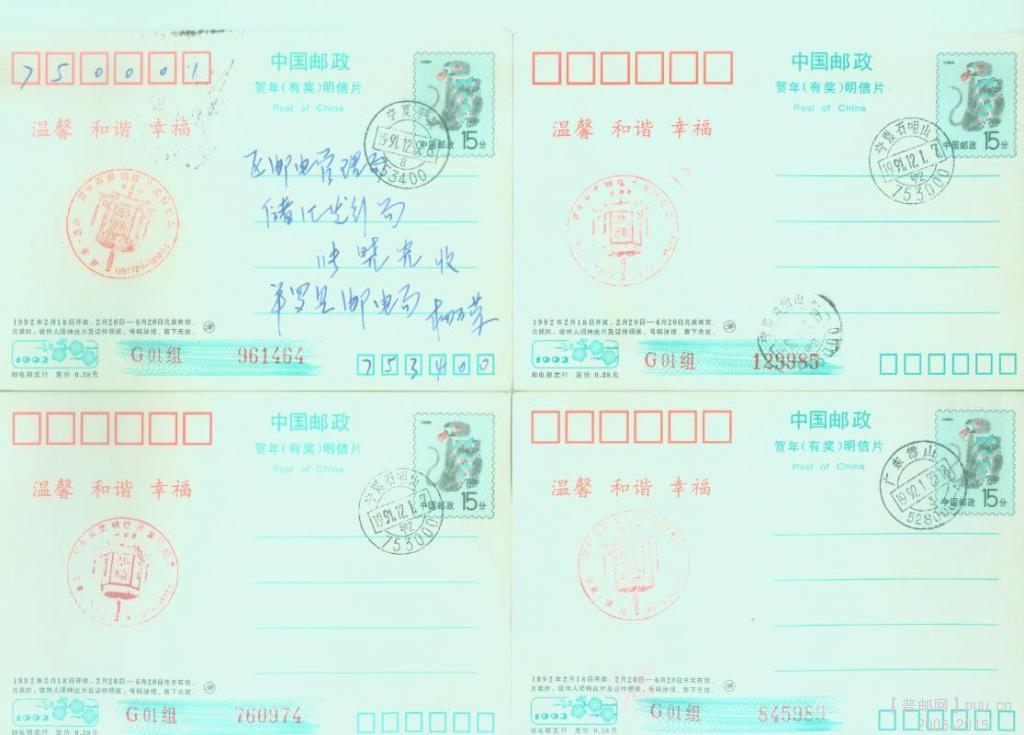 750001
中国邮政
贺年(有奖)明信片
Post of China
温馨 和谐 幸福
中国邮政 15分
1991.12.
8
753400
区邮电管理局
储汇发行局
张晓光 收
平罗县邮电局
1992年2月18日开奖,2月20日—6月20日兑奖有效,
兑奖时,收件人须持此片及证件领奖,号码涂损、剪下无效。
1992
G01组 961464
邮电部发行 定价:0.38元
753400
中国邮政
贺年(有奖)明信片
Post of China
温馨 和谐 幸福
中国邮政 15分
1991.12.1.
753000
1992年2月18日开奖,2月20日—6月20日兑奖有效,
兑奖时,收件人须持此片及证件领奖,号码涂损、剪下无效。
1992
G01组 129985
邮电部发行 定价:0.38元
中国邮政
贺年(有奖)明信片
Post of China
温馨 和谐 幸福
中国邮政 15分
1991.12.1.
753000
1992年2月18日开奖,2月20日—6月20日兑奖有效,
兑奖时,收件人须持此片及证件领奖,号码涂损、剪下无效。
1992
G01组 760974
邮电部发行 定价:0.38元
中国邮政
贺年(有奖)明信片
Post of China
温馨 和谐 幸福
中国邮政 15分
1992.1.
1992年2月18日开奖,2月20日—6月20日兑奖有效,
兑奖时,收件人须持此片及证件领奖,号码涂损、剪下无效。
1992
G01组 845989
邮电部发行 定价:0.38元
【普邮网】puu.cn
2005-2015